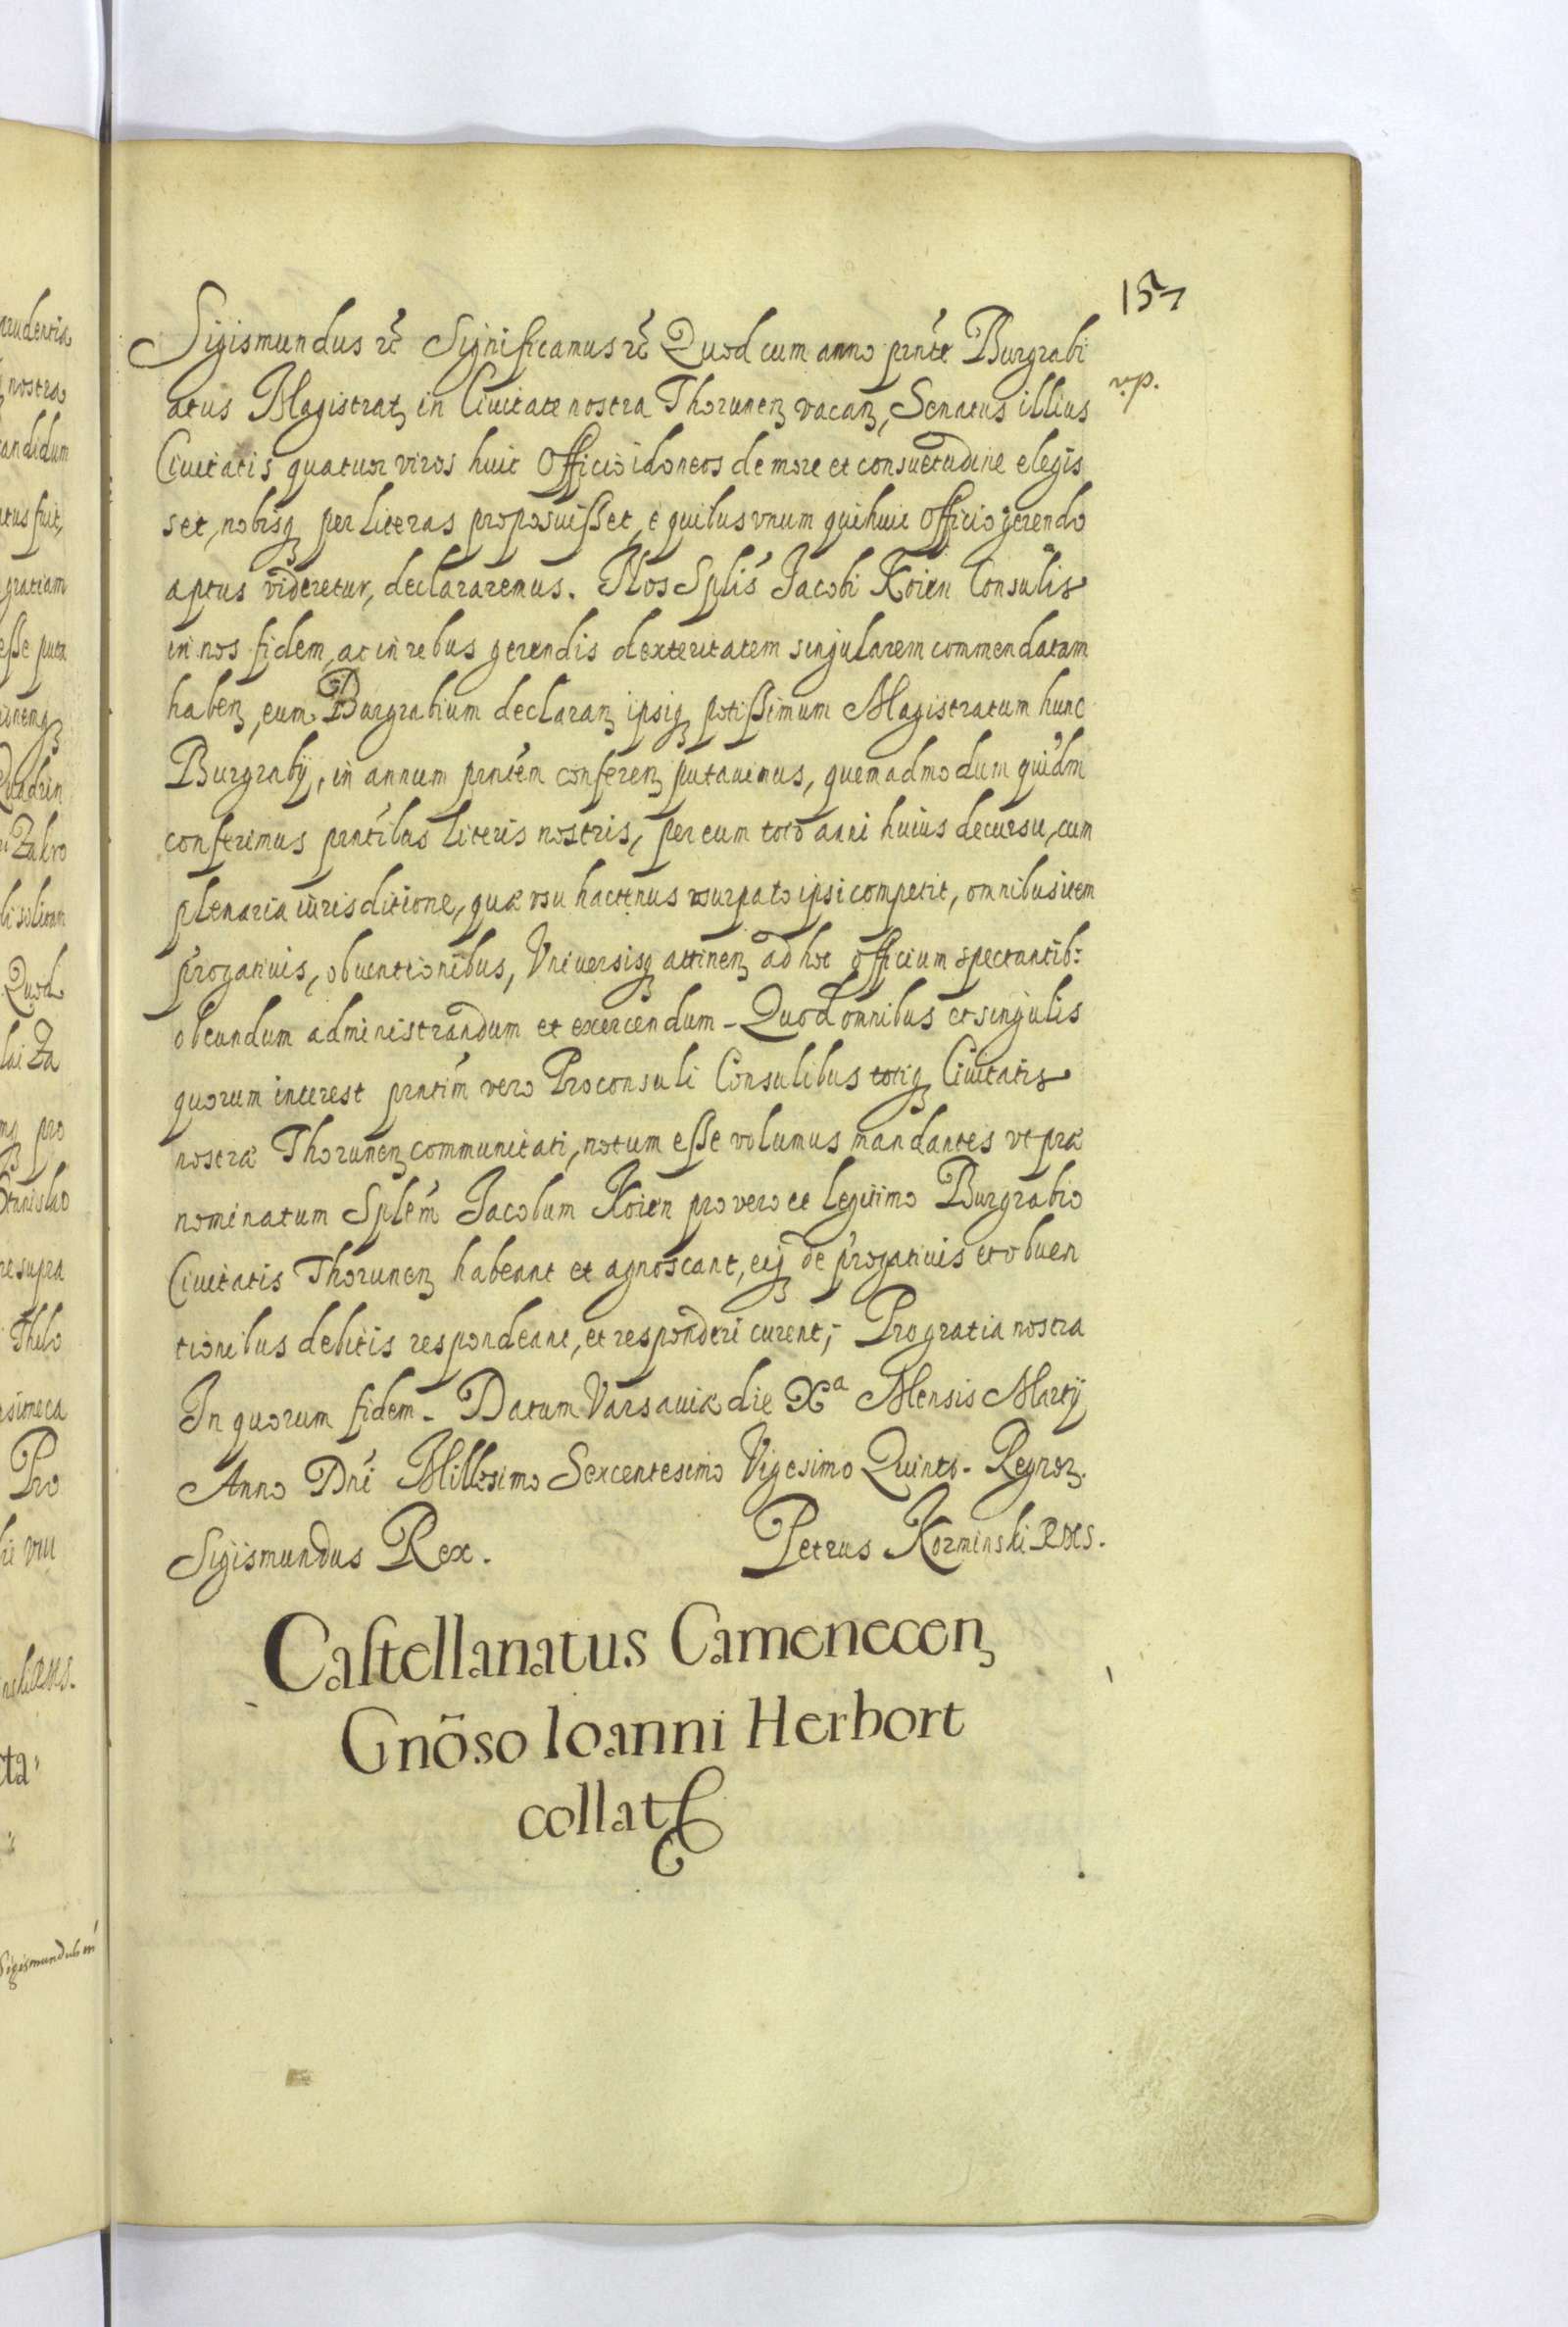 157
Sigismundus rč Significamus rč Quod cum anno prn̄te Burgrabi
vp.
atus Magistratꝫ in Ciuitate nostra Thorunenꝫ vacanꝫ, Senatus illius
Ciuitatis quatuor viros huic Officio idoneos de more et consuetudine elegis
set, nobisqꝫ per literas proposuisset, e quibus vnum qui huic officio gerendo
aptus videretur, declararemus. Nos Splis Jacobi Koien Consulis
in nos fidem, ac in rebus gerendis dexteritatem singularem commendatam
habenꝫ, eum Burgrabium declaranꝫ ipsiqꝫ potissimum Magistratum hunc
Burgrabij, in annum prn̄tem conferenꝫ putauimus, quemadmodum quidm
conferimus prn̄tibus literis nostris, per eum toto anni huius decursu, cum
plenaria iurisditione, quæ vsu hactenus vsurpato ipsi competit, omnibus item
p̓rogatiuis, obuentionibus, Vniuersisqꝫ attinenꝫ ad hoc officium spectantib:
obeundum administrandum et exercendum - Quod omnibus et singulis
quorum interest prn̄tim vero Proconsuli Consulibus totiqꝫ Ciuitatis
nostræ Thorunenꝫ communitati, notum esse volumus mandantes vt præ
nominatum Splem Jacobum Koien pro vero et legitimo Burgrabio
Ciuitatis Thorunenꝫ habeant et agnoscant, eiqꝫ de p̓rogatiuis et obuen
tionibus debitis respondeant, et responderi curent;- Pro gratia nostra
In quorum fidem - Datum Varsauiæ die Xª Mensis Martij
Anno Dn̄i Millesimo Sexcentesimo Vigesimo Quinto - Regnorꝫ.
Sigismundus Rex. Petrus Kozminski RMS.
Castellanatus Camenecenꝫ
Gnõso Ioanni Herbort
collatꝫ